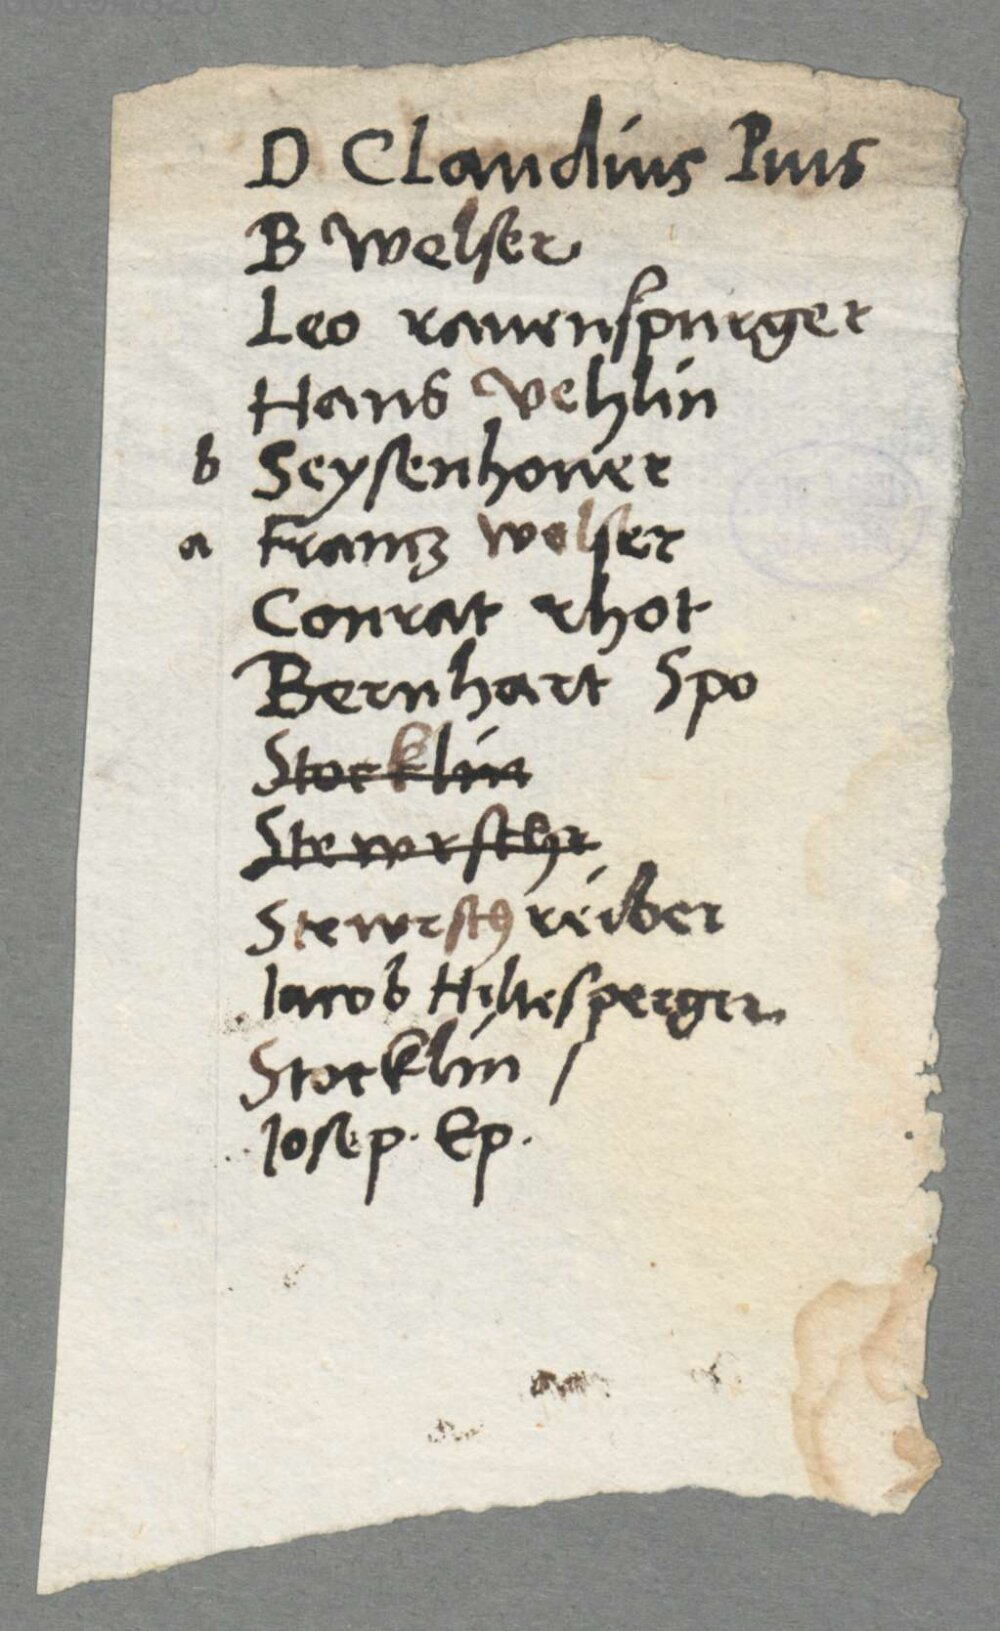 D Claudius Pius
B Welser
Leo ravenspurger
Hans Vehlin
b Seysenhover
a Frantz Welser
Conrat rhot
Bernhart Spo
Stocklin
Stewrschr
Stewrschreiber
Iacob Hiltesperger
Stocklin /
Iosep. Ep.